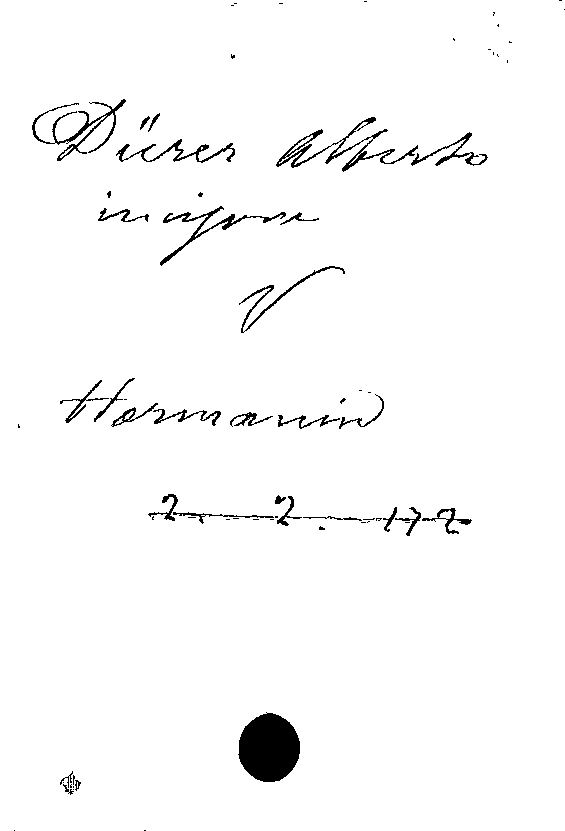 Dürer Alberto
incisore
V
Hermanin
2. 2. 172